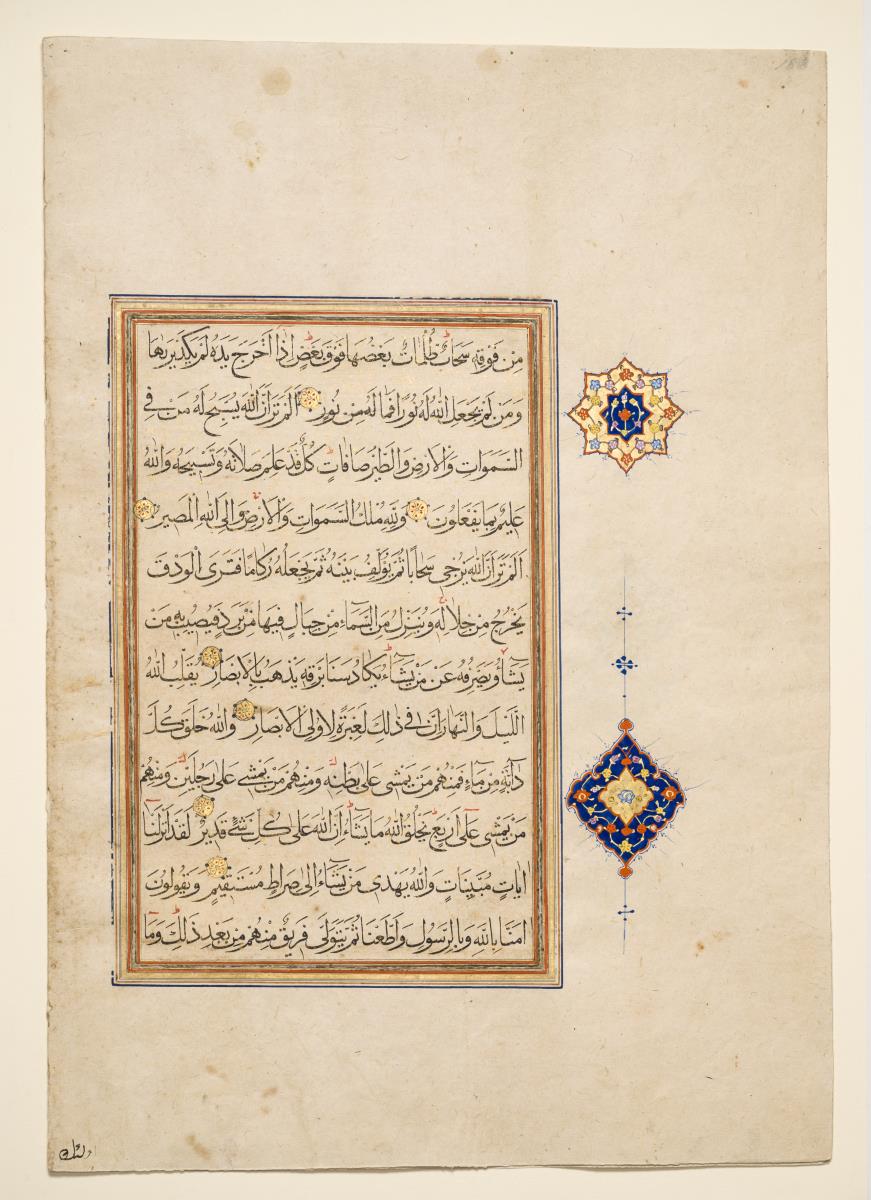 مِنْ فَوْقِهِ سَحَابٌ ظُلُمَاتٌ بَعْضُهَا فَوْقَ بَعْضٍ اِذَا اَخْرَجَ يَدَهُ لَمْ يَكَدْ يَرٰهَا
وَمَنْ لَمْ يَجْعَلِ اللّٰهُ لَهُ نُورًا فَمَا لَهُ مِنْ نُورٍ اَلَمْ تَرَ اَنَّ اللّٰهَ يُسَبِّحُ لَهُ مَنْ فِي
السَّمٰوَاتِ وَالْاَرْضِ وَالطَّيْرُ صَافَّاتٍ كُلٌّ قَدْ عَلِمَ صَلَاتَهُ وَتَسْبِيحَهُ وَاللّٰهُ
عَلِيمٌ بِمَا يَفْعَلُونَ وَلِلّٰهِ مُلْكُ السَّمٰوَاتِ وَالْاَرْضِ وَاِلَى اللّٰهِ الْمَصِيرُ
اَلَمْ تَرَ اَنَّ اللّٰهَ يُزْجِي سَحَابًا ثُمَّ يُؤَلِّفُ بَيْنَهُ ثُمَّ يَجْعَلُهُ رُكَامًا فَتَرَى الْوَدْقَ
يَخْرُجُ مِنْ خِلَالِهِ وَيُنَزِّلُ مِنَ السَّمَاءِ مِنْ جِبَالٍ فِيهَا مِنْ بَرَدٍ فَيُصِيبُ بِهِ مَنْ
يَشَاءُ وَيَصْرِفُهُ عَنْ مَنْ يَشَاءُ يَكَادُ سَنَا بَرْقِهِ يَذْهَبُ بِالْاَبْصَارِ يُقَلِّبُ اللّٰهُ
اللَّيْلَ وَالنَّهَارَ اِنَّ فِي ذٰلِكَ لَعِبْرَةً لِاُولِي الْاَبْصَارِ وَاللّٰهُ خَلَقَ كُلَّ
دَابَّةٍ مِنْ مَاءٍ فَمِنْهُمْ مَنْ يَمْشِي عَلٰى بَطْنِهِ وَمِنْهُمْ مَنْ يَمْشِي عَلٰى رِجْلَيْنِ وَمِنْهُمْ
مَنْ يَمْشِي عَلٰى اَرْبَعٍ يَخْلُقُ اللّٰهُ مَا يَشَاءُ اِنَّ اللّٰهَ عَلٰى كُلِّ شَيْءٍ قَدِيرٌ لَقَدْ اَنْزَلْنَا
اٰيَاتٍ مُبَيِّنَاتٍ وَاللّٰهُ يَهْدِي مَنْ يَشَاءُ اِلٰى صِرَاطٍ مُسْتَقِيمٍ وَيَقُولُونَ
اٰمَنَّا بِاللّٰهِ وَبِالرَّسُولِ وَاَطَعْنَا ثُمَّ يَتَوَلّٰى فَرِيقٌ مِنْهُمْ مِنْ بَعْدِ ذٰلِكَ وَمَا